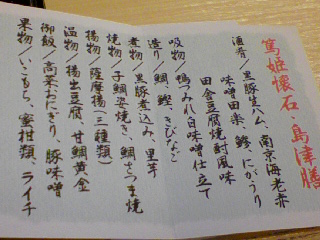 篤姫懐石・島津膳
酒肴／黒豚生ハム、南京海老赤
味噌田楽、鯵にがうり
田舎豆腐焼酎風味
吸物／鴨つみれ白味噌仕立て
造り／鯛、鰹、きびなご
煮物／黒豚煮込み、里芋
焼物／子鯛姿焼き、鯛さつま焼
揚物／薩摩揚（三種類）
温物／揚出豆腐、甘鯛黄金
御飯／高菜おにぎり、豚味噌
果物／いこもち、蜜柑類、ライチ